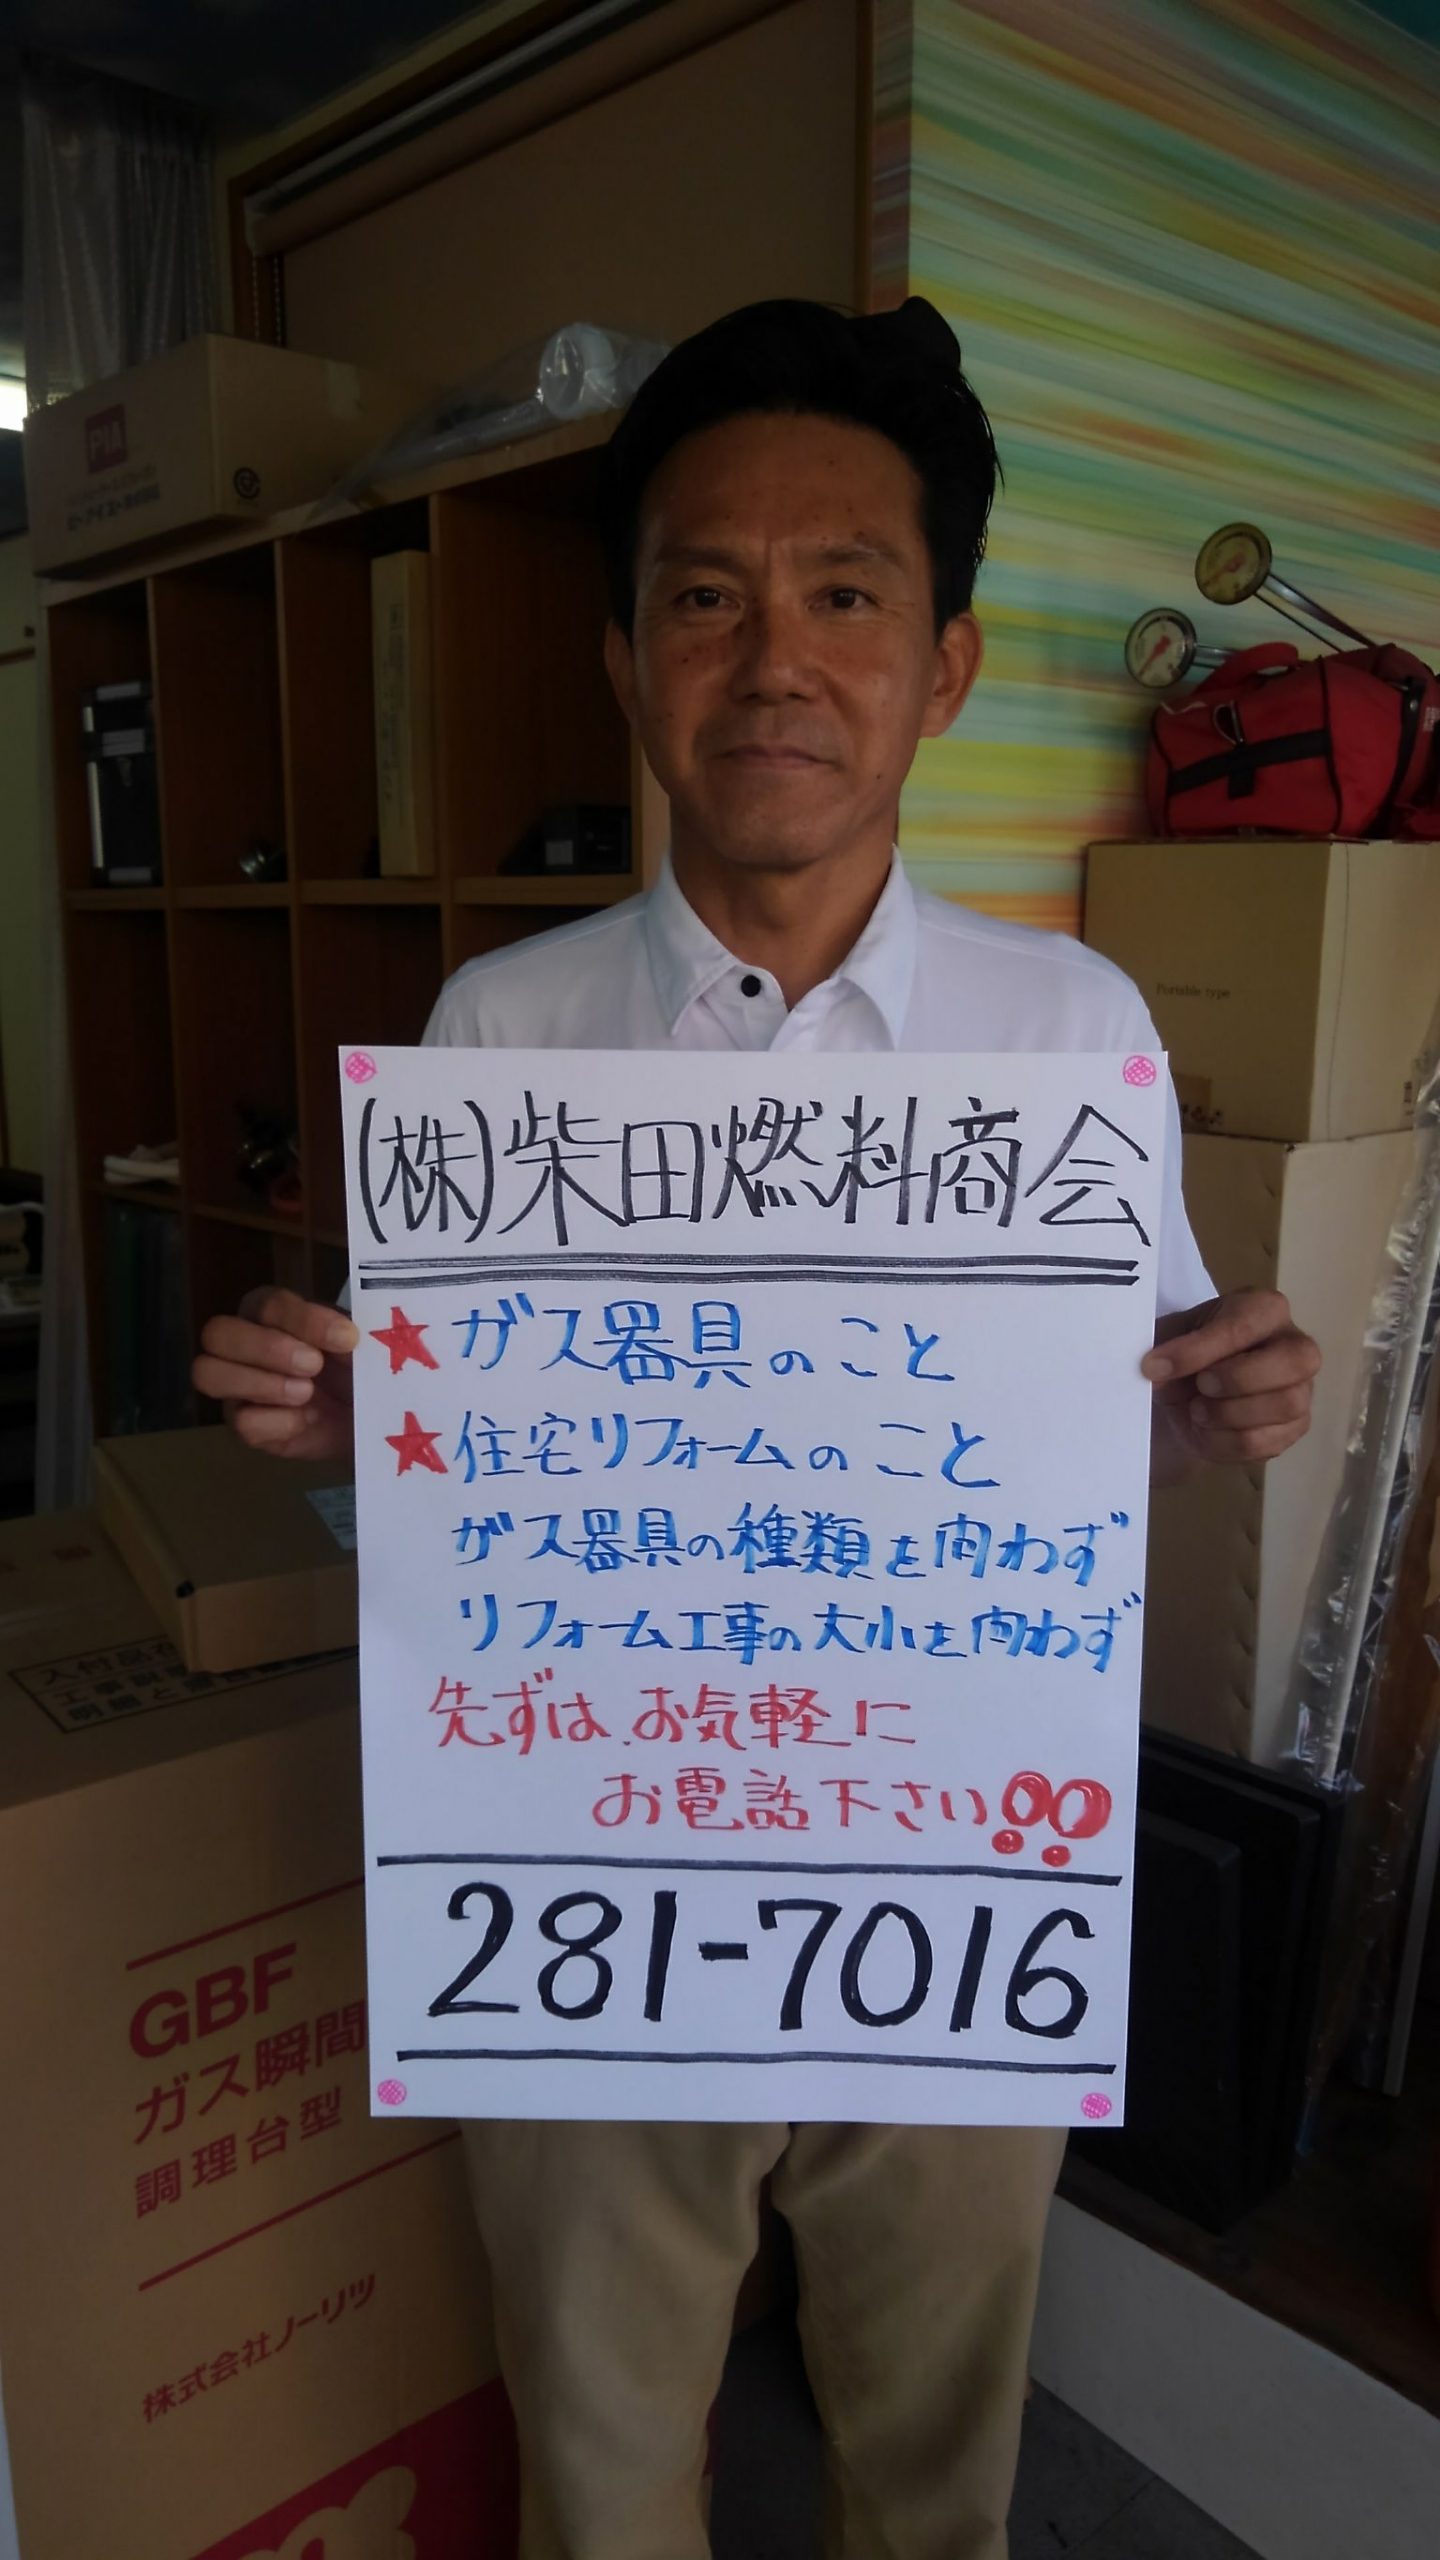 (株)柴田燃料商会
★ガス器具のこと
★住宅リフォームのこと
ガス器具の種類を問わず
リフォーム工事の大小を問わず
先ずは、お気軽に
お電話下さい!!
281-7016
PIA
Portable type
GBF
ガス瞬間
調理台型
株式会社ノーリツ